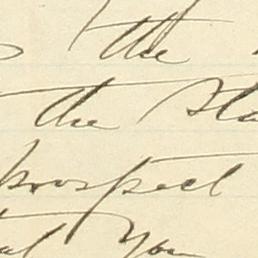 the
the Sta
prospect
You